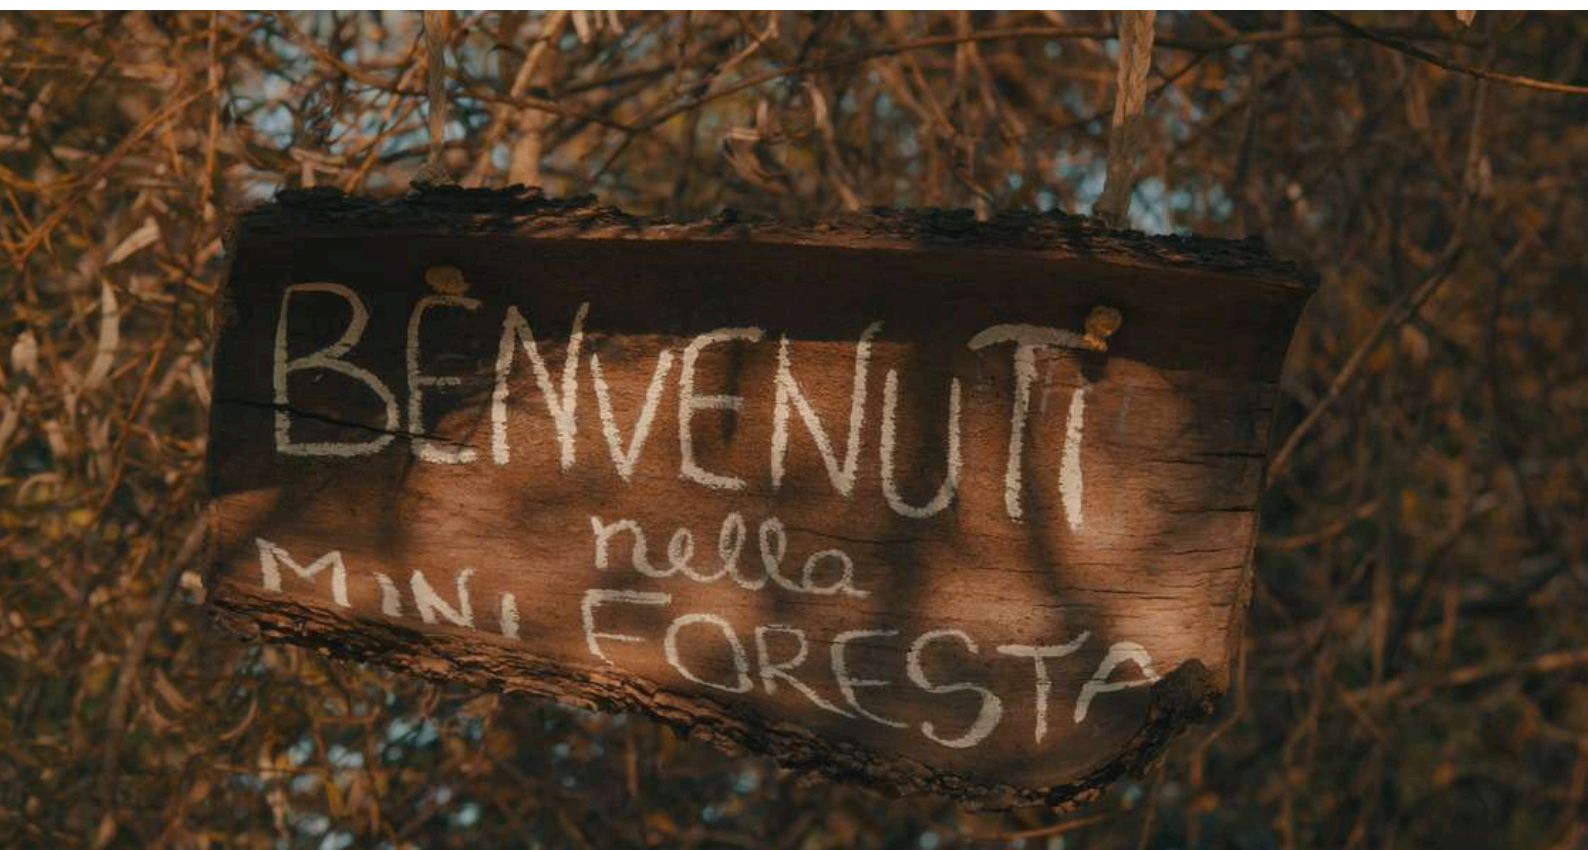 BENVENUTI
nella
MINI FORESTA